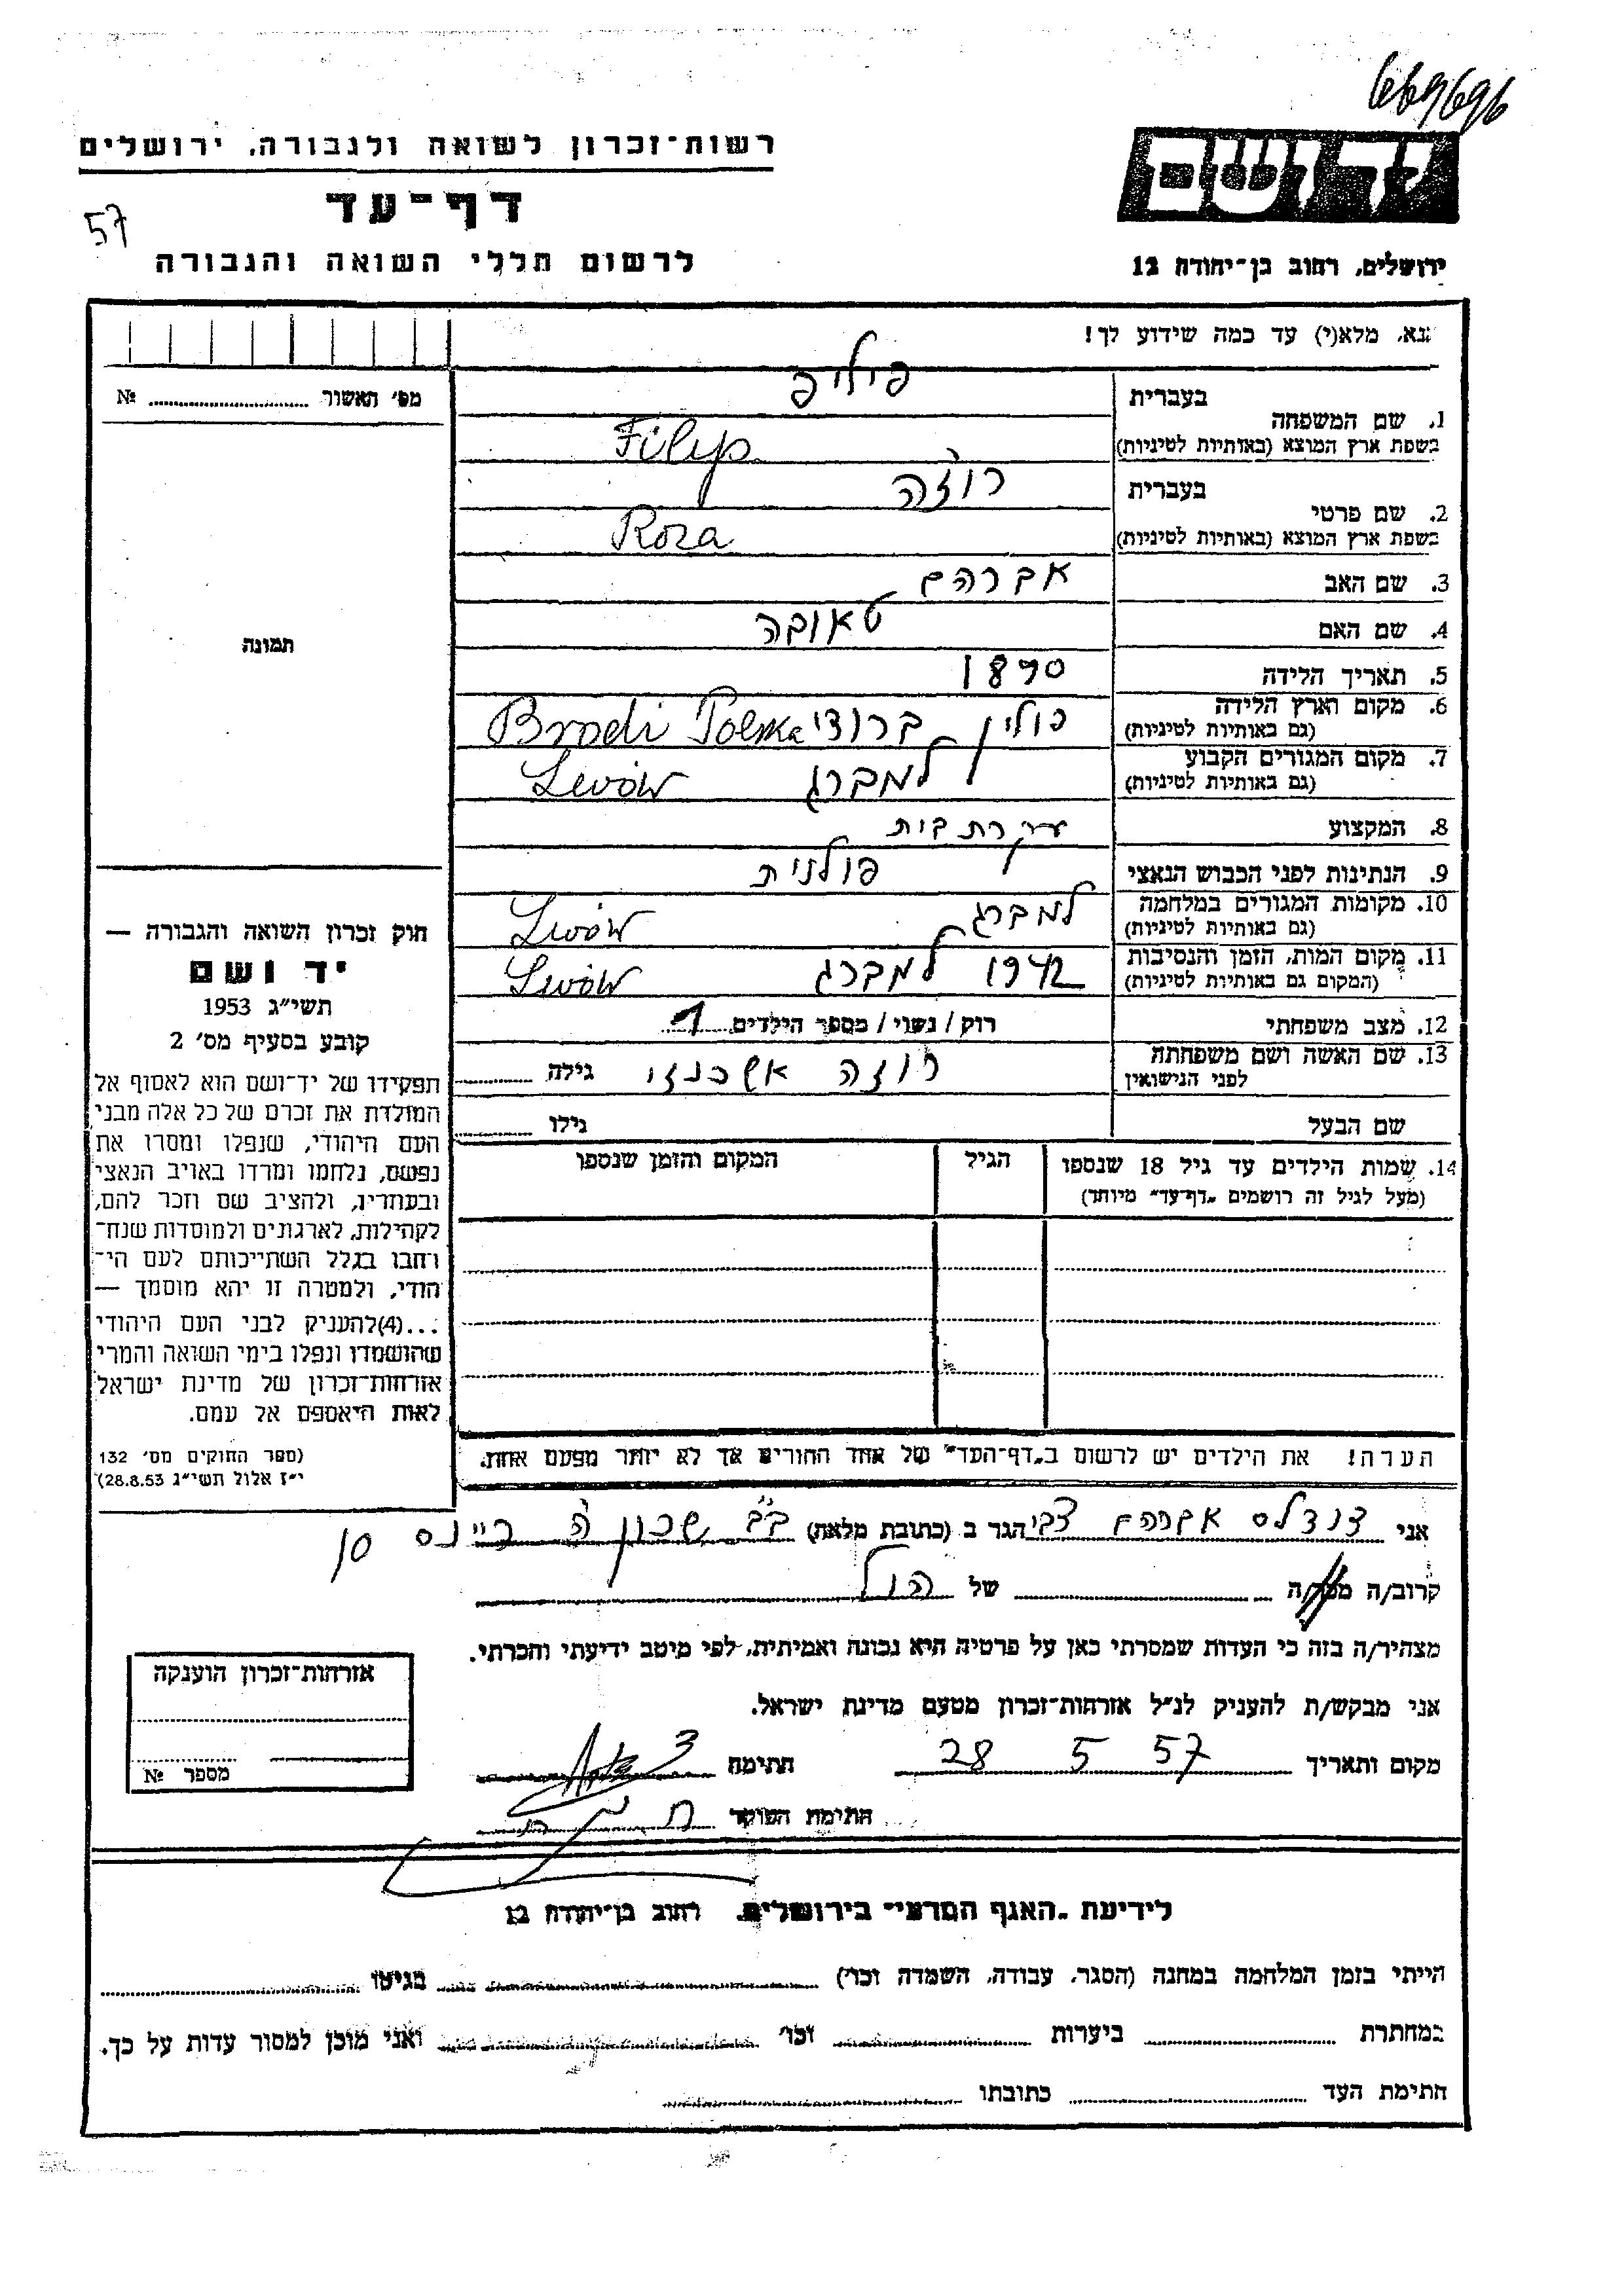 669696
רשות־זכרון לשואה ולגבורה, ירושלים
יד ושם
דף־עד
57
לרשום חללי השואה והגבורה
ירושלים, רחוב בן־יהודה 12
נא, מלא(י) עד כמה שידוע לך!
מס׳ האשור № 
בעברית פיליפ
1. שם המשפחה
בשפת ארץ המוצא (באותיות לטיניות) Filip
בעברית רוזה
2. שם פרטי
בשפת ארץ המוצא (באותיות לטיניות) Roza
3. שם האב אברהם
4. שם האם טאובה
תמונה
5. תאריך הלידה 1890
6. מקום וארץ הלידה פולין ברודי Brodi Polska
(גם באותיות לטיניות)
7. מקום המגורים הקבוע למברג Lwów
(גם באותיות לטיניות)
8. המקצוע עקרת בית
9. הנתינות לפני הכבוש הנאצי פולנית
10. מקומות המגורים במלחמה למברג Lwów
(גם באותיות לטיניות)
11. מקום המות, הזמן והנסיבות 1942 למברג Lwów
(המקום גם באותיות לטיניות)
12. מצב משפחתי רוק / נשוי / מספר הילדים 1
13. שם האשה ושם משפחתה רוזה אשכנזי גילה
לפני הנישואין
שם הבעל גילו
14. שמות הילדים עד גיל 18 שנספו הגיל המקום והזמן שנספו
(מעל לגיל זה רושמים „דף־עד” מיוחד)
הערה! את הילדים יש לרשום ב„דף־העד” של אחד ההורים אך לא יותר מפעם אחת.
חוק זכרון השואה והגבורה —
יד ושם
תשי״ג 1953
קובע בסעיף מס׳ 2
תפקידו של יד־ושם הוא לאסוף אל
המולדת את זכרם של כל אלה מבני
העם היהודי, שנפלו ומסרו את
נפשם, נלחמו ומרדו באויב הנאצי
ובעוזריו, ולהציב שם וזכר להם,
לקהילות, לארגונים ולמוסדות שנח־
רחבו בגלל השתייכותם לעם הי־
הודי, ולמטרה זו יהא מוסמך —
...(4)להעניק לבני העם היהודי
שהושמדו ונפלו בימי השואה והמרי
אזרחות־זכרון של מדינת ישראל
לאות היאספם אל עמם.
(ספר החוקים מס׳ 132
י״ז אלול תשי״ג 28.8.53)
אני אברהם צבי הגר ב (כתובת מלאה) ב״ב שכון ה׳ 10
קרוב/ה מכר/ה של
מצהיר/ה בזה כי העדות שמסרתי כאן על פרטיה היא נכונה ואמיתית, לפי מיטב ידיעתי והכרתי.
אני מבקש/ת להעניק לנ״ל אזרחות־זכרון מטעם מדינת ישראל.
מקום ותאריך 28 5 57 חתימה
חתימת הפוקד
אזרחות־זכרון הוענקה
מספר №
לידיעת „האגף המדעי” בירושלים, רחוב בן־יהודה 12
הייתי בזמן המלחמה במחנה (הסגר, עבודה, השמדה וכו׳) בגיטו
במחתרת ביערות וכו׳ ואני מוכן למסור עדות על כך.
חתימת העד כתובתו